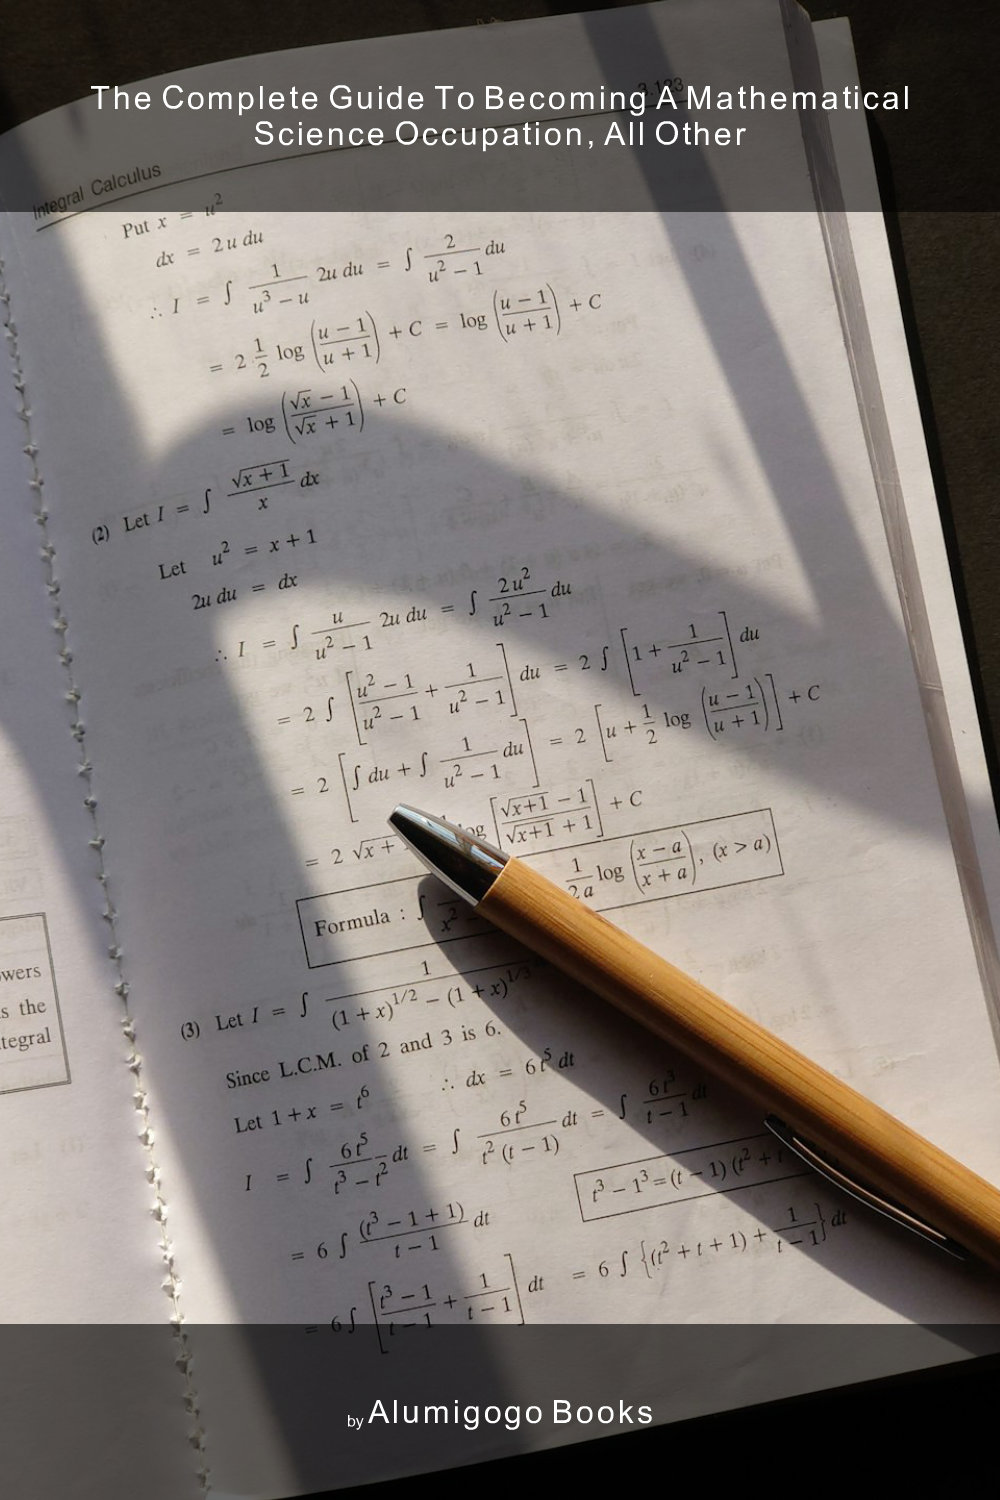 The Complete Guide To Becoming A Mathematical
Science Occupation, All Other
Integral Calculus
Put x = u²
dx = 2u du
∴ I = ∫ 1/(u³ − u) 2u du = ∫ 2/(u² − 1) du
= 2 · 1/2 log ((u − 1)/(u + 1)) + C = log ((u − 1)/(u + 1)) + C
= log ((√x − 1)/(√x + 1)) + C
(2) Let I = ∫ √(x + 1)/x dx
Let u² = x + 1
2u du = dx
∴ I = ∫ u/(u² − 1) 2u du = ∫ 2u²/(u² − 1) du
= 2 ∫ [(u² − 1)/(u² − 1) + 1/(u² − 1)] du = 2 ∫ [1 + 1/(u² − 1)] du
= 2 [∫ du + ∫ 1/(u² − 1) du] = 2 [u + 1/2 log ((u − 1)/(u + 1))] + C
= 2 √x + log [(√(x+1) − 1)/(√(x+1) + 1)] + C
Formula : ∫ x² 1/2a log ((x − a)/(x + a)), (x > a)
(3) Let I = ∫ 1/((1 + x)^1/2 − (1 + x)^1/3)
Since L.C.M. of 2 and 3 is 6.
Let 1 + x = t⁶ ∴ dx = 6t⁵ dt
I = ∫ 6t⁵/(t³ − t²) dt = ∫ 6t⁵/(t² (t − 1)) dt = ∫ 6t³/(t − 1) dt
t³ − 1³ = (t − 1) (t² + t
= 6 ∫ (t³ − 1 + 1)/(t − 1) dt
= 6 ∫ [(t³ − 1)/(t − 1) + 1/(t − 1)] dt = 6 ∫ {(t² + t + 1) + 1/(t − 1)} dt
wers
s the
tegral
by Alumigogo Books